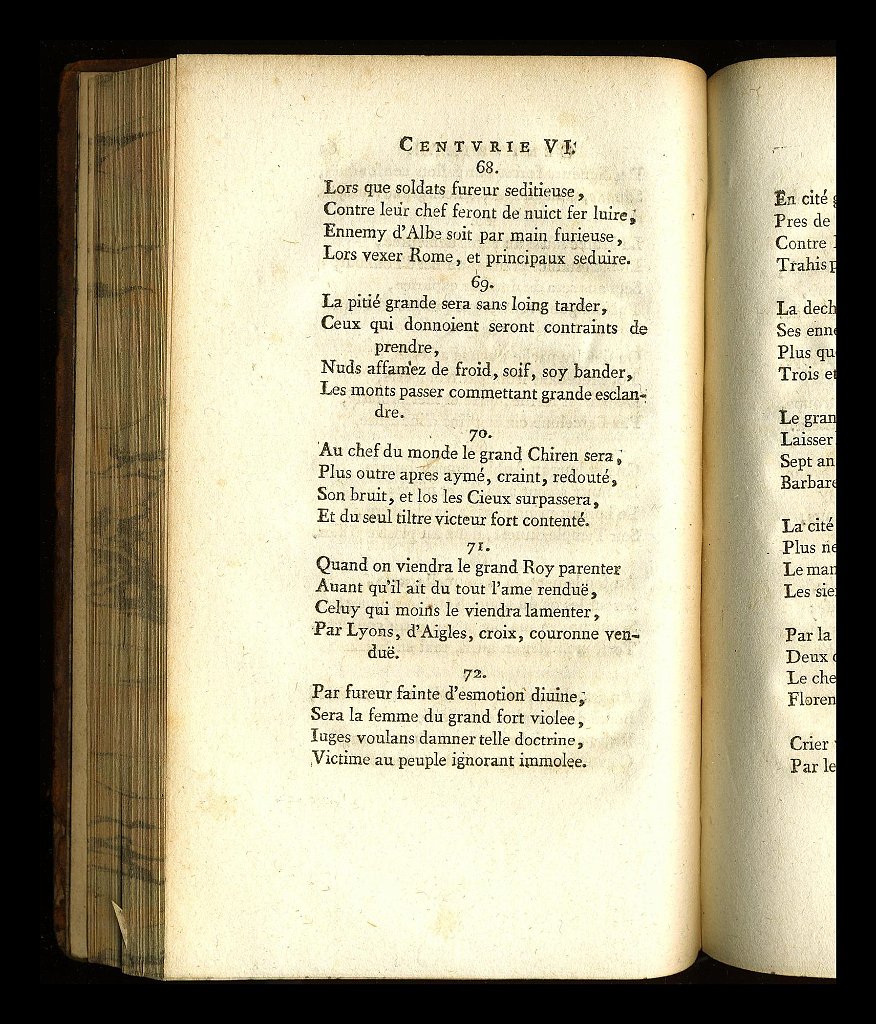 CENTVRIE VI.
68.
Lors que soldats fureur seditieuse,
Contre leur chef feront de nuict fer luire;
Ennemy d'Albe soit par main furieuse,
Lors vexer Rome, et principaux seduire.
69.
La pitié grande sera sans loing tarder,
Ceux qui donnoient seront contraints de
prendre,
Nuds affamez de froid, soif, soy bander,
Les monts passer commettant grande esclan-
dre.
70.
Au chef du monde le grand Chiren sera;
Plus outre apres aymé, craint, redouté,
Son bruit, et los les Cieux surpassera,
Et du seul tiltre victeur fort contenté.
71.
Quand on viendra le grand Roy parenter
Auant qu'il ait du tout l'ame renduë,
Celuy qui moins le viendra lamenter,
Par Lyons, d'Aigles, croix, couronne ven-
duë.
72.
Par fureur fainte d'esmotion diuine;
Sera la femme du grand fort violee,
Iuges voulans damner telle doctrine,
Victime au peuple ignorant immolee.
En cité
Pres de
Contre
Trahis
La
Ses
Plus
Trois
Le
Laisser
Sept
La cité
Plus
Le
Les
Par la
Deux
Le
Crier
Par